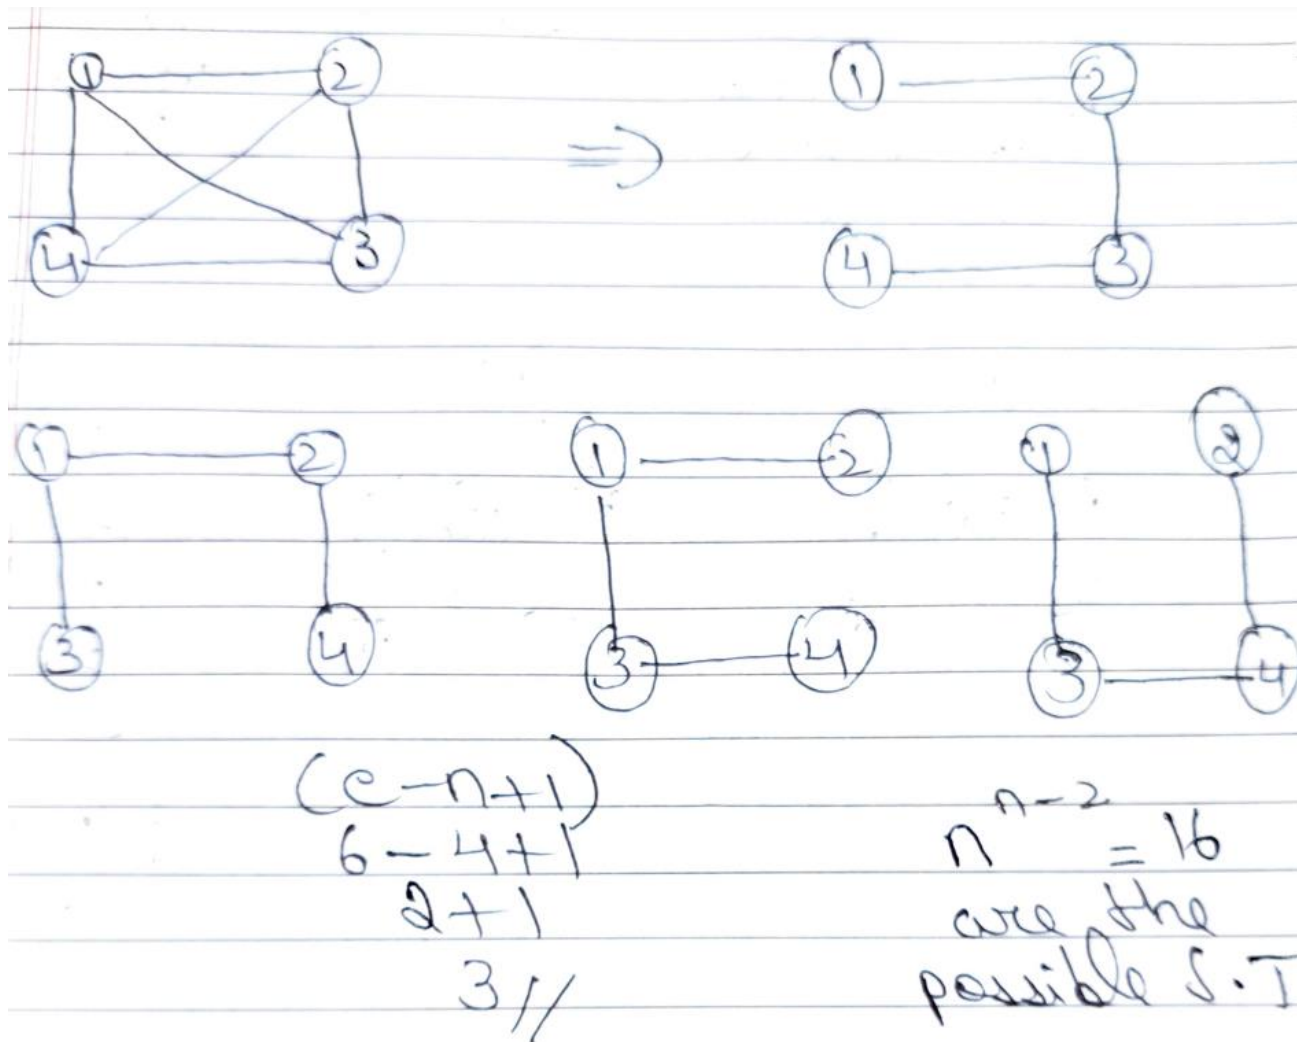 1 2 1 2
4 3 4 3
1 2 1 2 1 2
3 4 3 4 3 4
(e-n+1)
6-4+1
2+1
3//
n^{n-2} = 16
are the
possible S.T